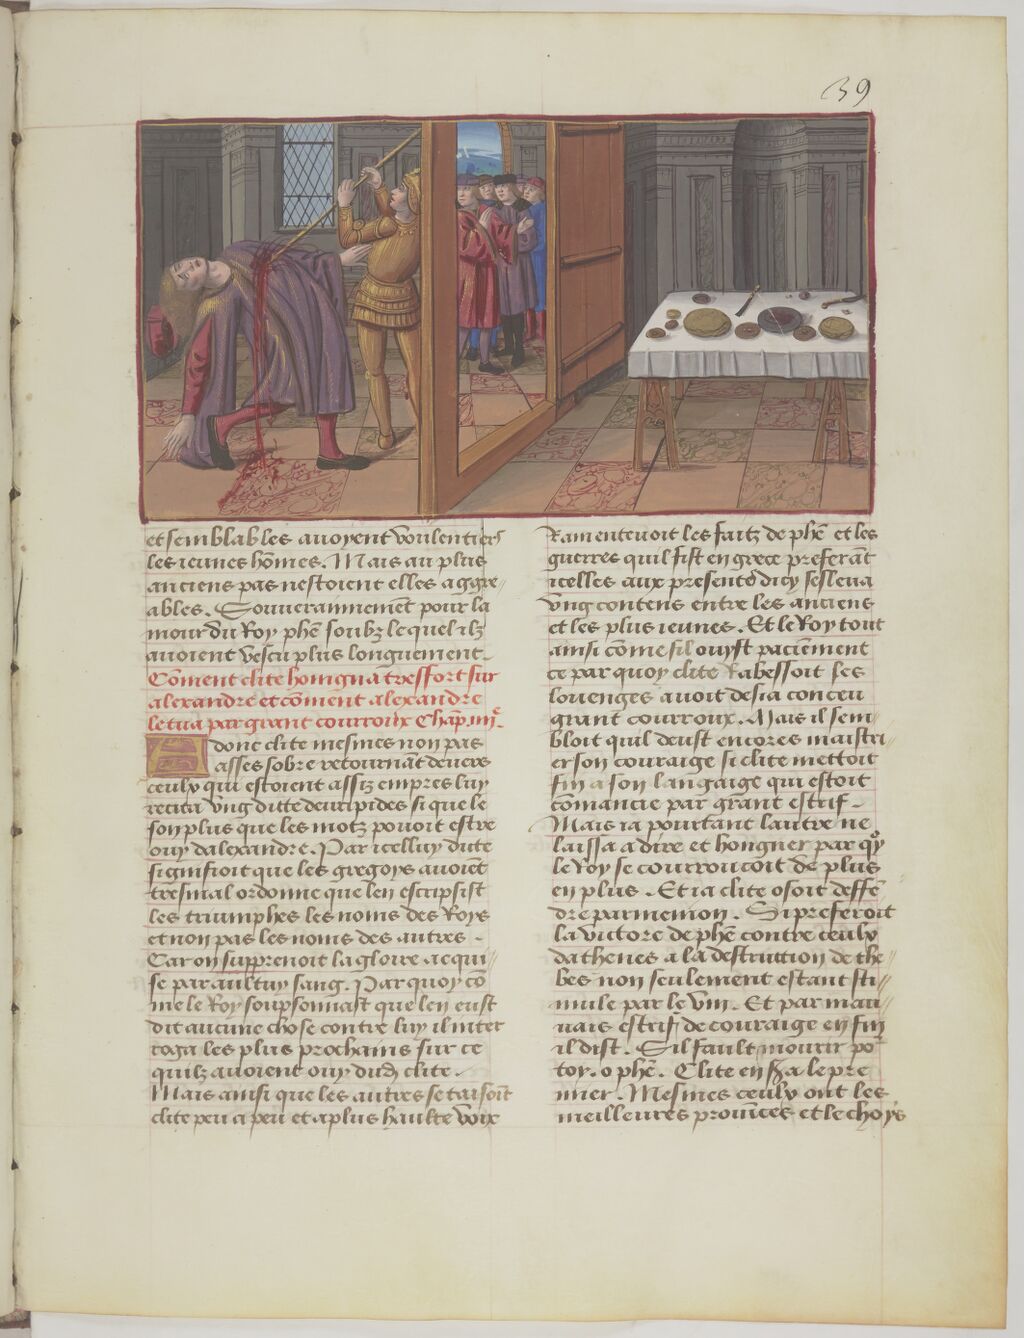 39
et semblables avoyent voulentiers
les ieunes hõmes. Mais au plus
anciens pas nestoient elles aggre
ables. Souverainnemẽt pour la
mour du Roy phẽ soubz lequel ilz
avoient vescu plus longuement.
Cõment clite hongna tressfort sur
alexandre et cõment alexandre
le tua par grant courroux Chap. iiij.
Adonc clite mesmes non pas
asses sobre retournãt devers
ceulx qui estoient assiz empres luy
recita ung ditte deuripides si que le
son plus que les motz povoit estre
ouy dalexandre. Par icelluy dicte
signifioit que les gregoys avoiẽt
tresmal ordonne que len escripsist
les triumphes les noms des Roys
et non pas les noms des autres.
Car on supprenoit la gloire acqui
se par aultuy sang. Par quoy cõ
me le Roy soupsonnast que len eust
dit aucune chose contre luy il inter
roga les plus prochains sur ce
quilz avoient ouy dud clite.
Mais ainsi que les autres se taisoiẽt
clite peu a peu et a plus haulte voix
Ramentevoit les faitz de phẽ et les
guerres quil fist en grece preferãt
icelles aux presents dicy sesleva
ung contens entre les anciens
et les plus ieunes. Et le Roy tout
ainsi cõme sil ouyst paciẽment
ce par quoy clite Rabessoit ses
lovenges avoit desia conceu
grant courroux. Mais il sem
bloit quil deust encores maistri
er son couraige si clite mettoit
fin a son langaige qui estoit
cõmancie par grant estrif.
Mais ia pourtant lautre ne
laissa a dire et hongner par qͦy
le Roy se courroucoit de plus
en plus. Et ia clite osoit deffẽ
dre parmenion. Si preferoit
la victore de phẽ contre ceulx
dathenes a la destruction de the
bes non seulement estant sti
mule par le vin. Et par mau
vais estrif de couraige en fin
il dist. Sil fault mourir po
toy. o phẽ. Clite en sera le pre
mier. Mesmes ceulx ont les
meilleures provinces et le choys